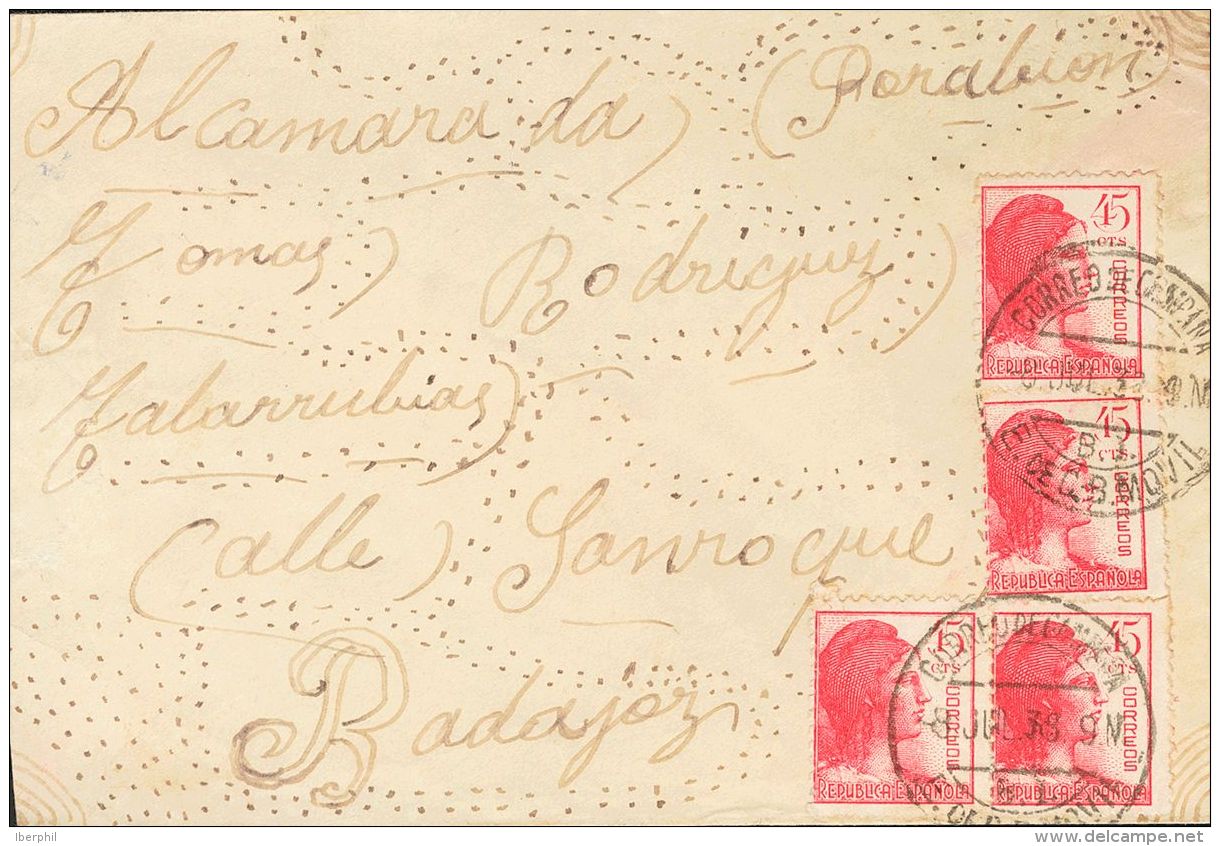 Alcamarada (Porabion
Tomas) Rodriguez)
Talarrubias)
Calle) Sanroque
Badajoz
45
CTS
CORREOS
REPUBLICA ESPAÑOLA
CORREO DE CAMPAÑA
8 JUL. 38 9.N
B. 1.
45
CTS
CORREOS
REPUBLICA ESPAÑOLA
C.B. MOVIL
45
CTS
CORREOS
REPUBLICA ESPAÑOLA
45
CTS
CORREOS
REPUBLICA ESPAÑOLA
CORREO DE CAMPAÑA
8 JUL. 38 9 N
Iberphil
delcampe.net